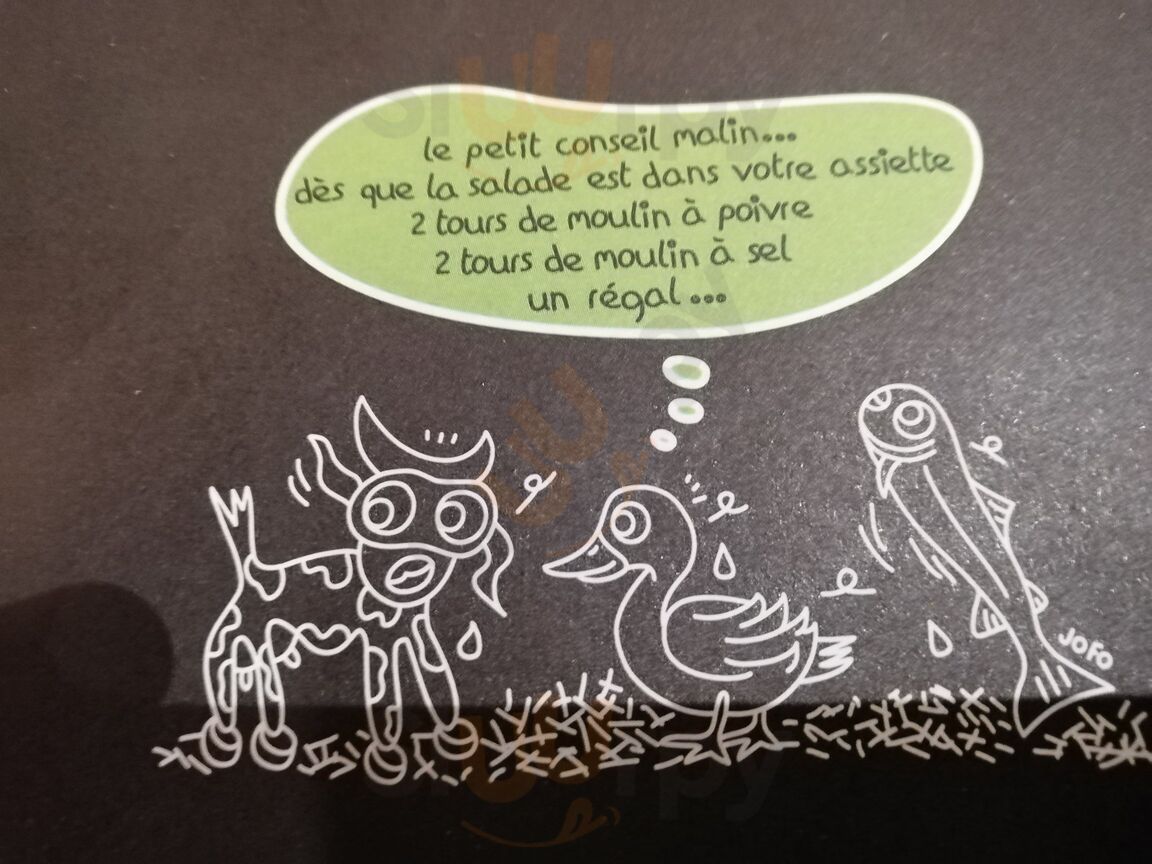 le petit conseil malin...
dès que la salade est dans votre assiette
2 tours de moulin à poivre
2 tours de moulin à sel
un régal...
JOFO
sluurpy
sluurpy